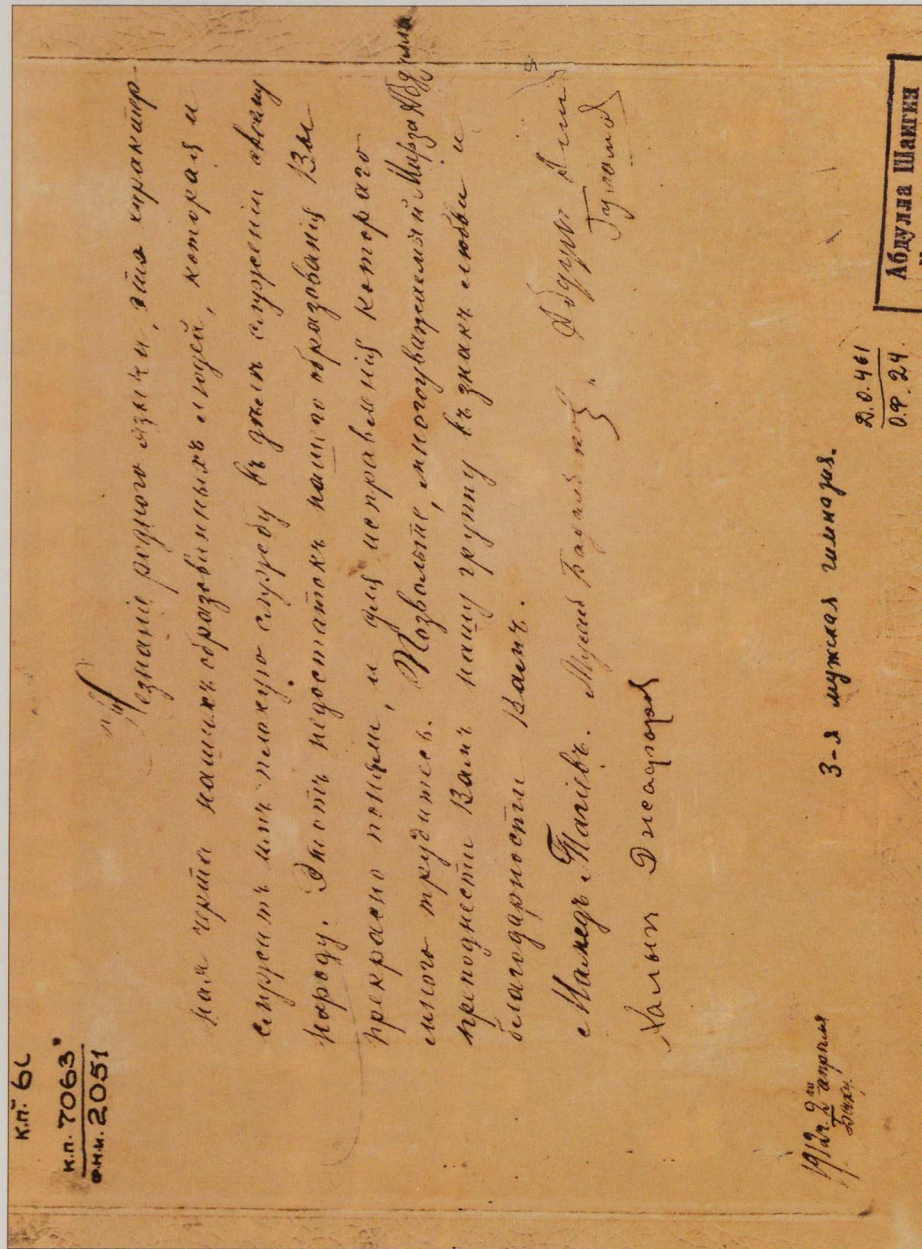 К.П. 6с
К.П. 7063
Ф.Н.И. 2051
Незнаніе родного языка, это характер-
ная черта нашихъ образованныхъ людей, которая и
служитъ имъ плохую службу въ дѣлѣ служенія своему
народу. Этотъ недостатокъ нашего образованія Вы
прекрасно поняли, и для исправленія котораго
много трудитесь. Позвольте, многоуважаемый Мирза Абдулла
преподнести Вамъ нашу группу въ знакъ любви и
благодарности Вамъ.
Мамедъ Тагіевъ.
Халыл Джафаров
1912 г. 2го апрѣля
Баку.
3-я мужская гимназія.
Д.О. 461
О.Ф. 24.
Абдулла Шаигин